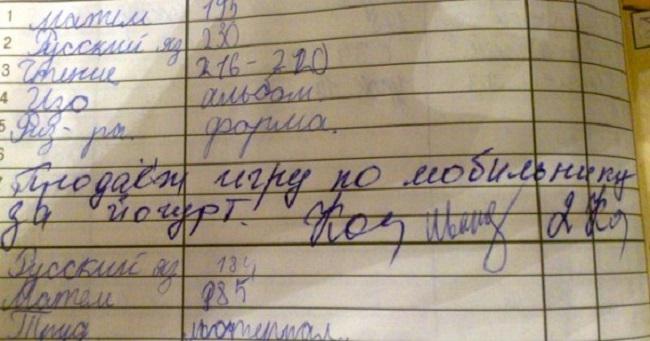 1 Матем 195
2 Русский яз 230
3 Чтение 216-220
4 Изо альбом.
5 Физ-ра. форма.
6
Продаёж игру по мобильнику
за йогурт.
Русский яз 184
Матем 985
Труд материал.